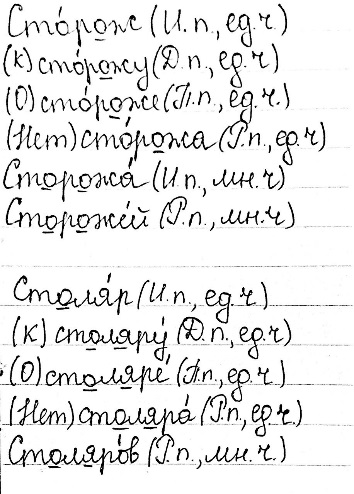 Сто́рож (И.п., ед.ч)
(к) сто́рожу (Д.п., ед.ч)
(О) сто́роже (П.п., ед.ч.)
(Нет) сто́рожа (Р.п., ед.ч)
Сторожа́ (И.п., мн.ч)
Стороже́й (Р.п., мн.ч)
Столя́р (И.п., ед.ч)
(к) столяру́ (Д.п., ед.ч.)
(О) столяре́ (П.п., ед.ч.)
(Нет) столяра́ (Р.п., ед.ч.)
Столяро́в (Р.п., мн.ч.)